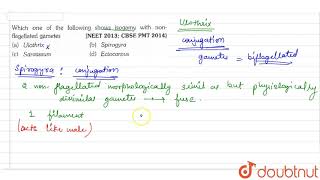 Which one of the following shows isogamy with non-
flagellated gametes [NEET 2013; CBSE PMT 2014]
(a) Ulothrix x (b) Spirogyra
(c) Sargassum (d) Ectocarpus
Ulothrix
conjugation
gametes = biflagellated
Spirogyra : conjugation
2 non-flagellated morphologically similar but physiologically
dissimilar gametes → fuse.
1 filament
(acts like male)
doubtnut